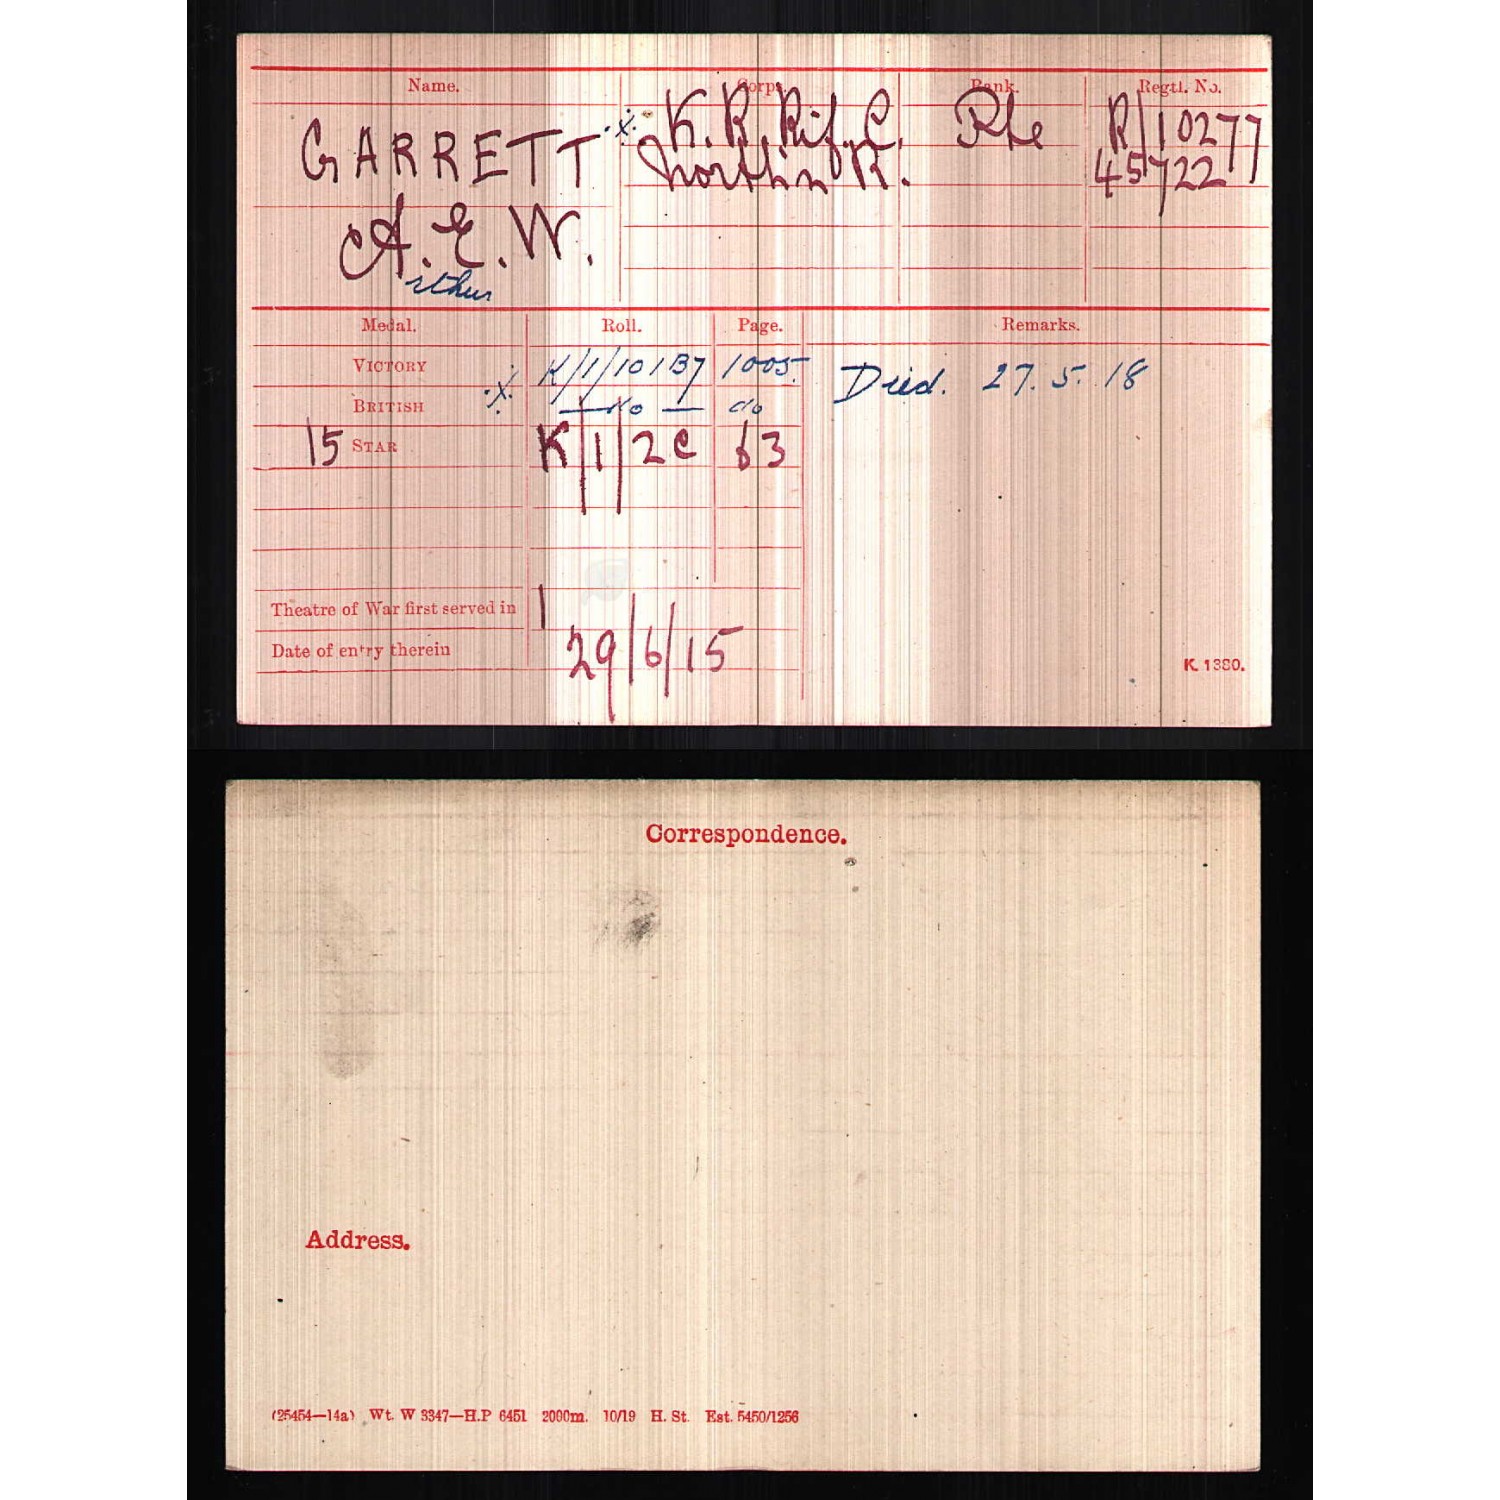 Name. Corps. Rank. Regtl. No.
GARRETT .x. K. R. Rif. C. Rfe R/10277
North'n R. 45722
A. E. W.
rthur
Medal. Roll. Page. Remarks.
VICTORY K/1/101B7 1005. Died. 27. 5. 18
BRITISH .x. — do — do
15 STAR K/1/2C 63
Theatre of War first served in 1
Date of entry therein 29/6/15
K. 1380.
Correspondence.
Address.
(25454—14a) Wt. W 3347—H.P 6451 2000m. 10/19 H. St. Est. 5450/1256